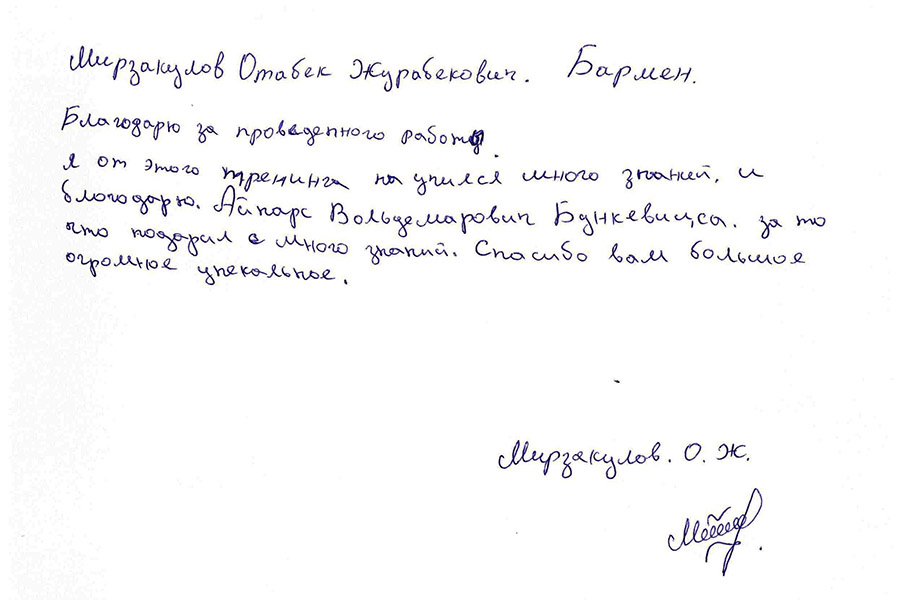 Мирзакулов Отабек Журабекович. Бармен.
Благодарю за проведенного работы.
я от этого тренинга на учился много знаний, и
блогодарю. Айнарс Вольдемарович Бункевицса. за то
что подарил с много знаний. Спасибо вам большое
огромное уникальное.
Мирзакулов. О. Ж.